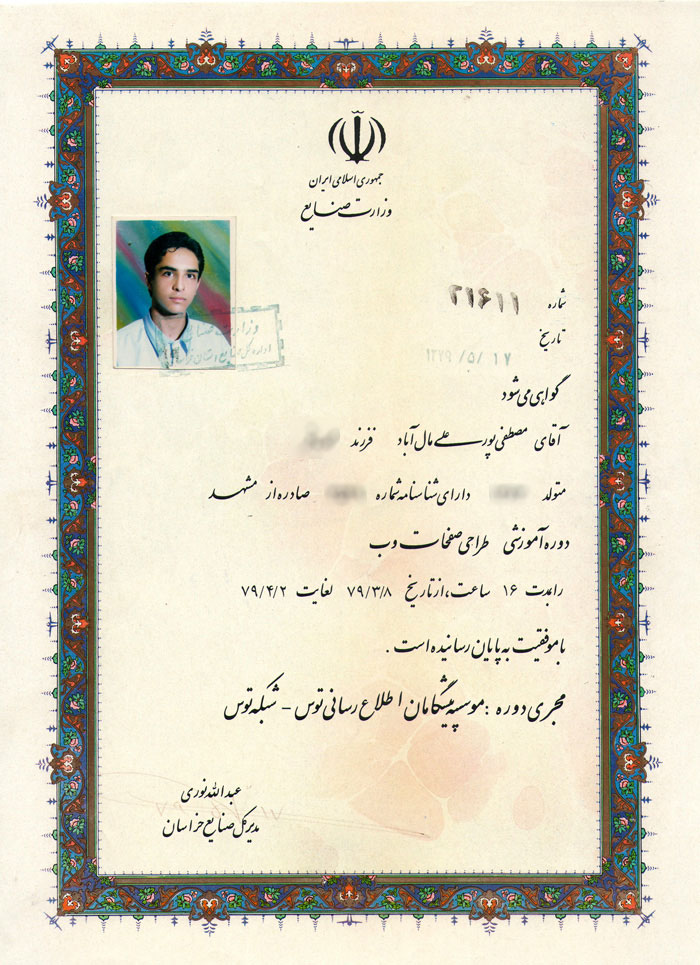 جمهوری اسلامی ایران
وزارت صنایع
شماره ۲۹۶۱۱
تاریخ ۱۳۷۹/۵/۱۷
گواهی می شود
آقای مصطفی پور علی مال آباد فرزند
متولد دارای شناسنامه شماره صادره از مشهد
دوره آموزشی طراحی صفحات وب
را بمدت ۱۶ ساعت، از تاریخ ۷۹/۳/۸ لغایت ۷۹/۴/۲
با موفقیت به پایان رسانیده است .
مجری دوره : موسسه پیشگامان اطلاع رسانی توس - شبکه توس
عبدالله نوری
مدیر کل صنایع خراسان